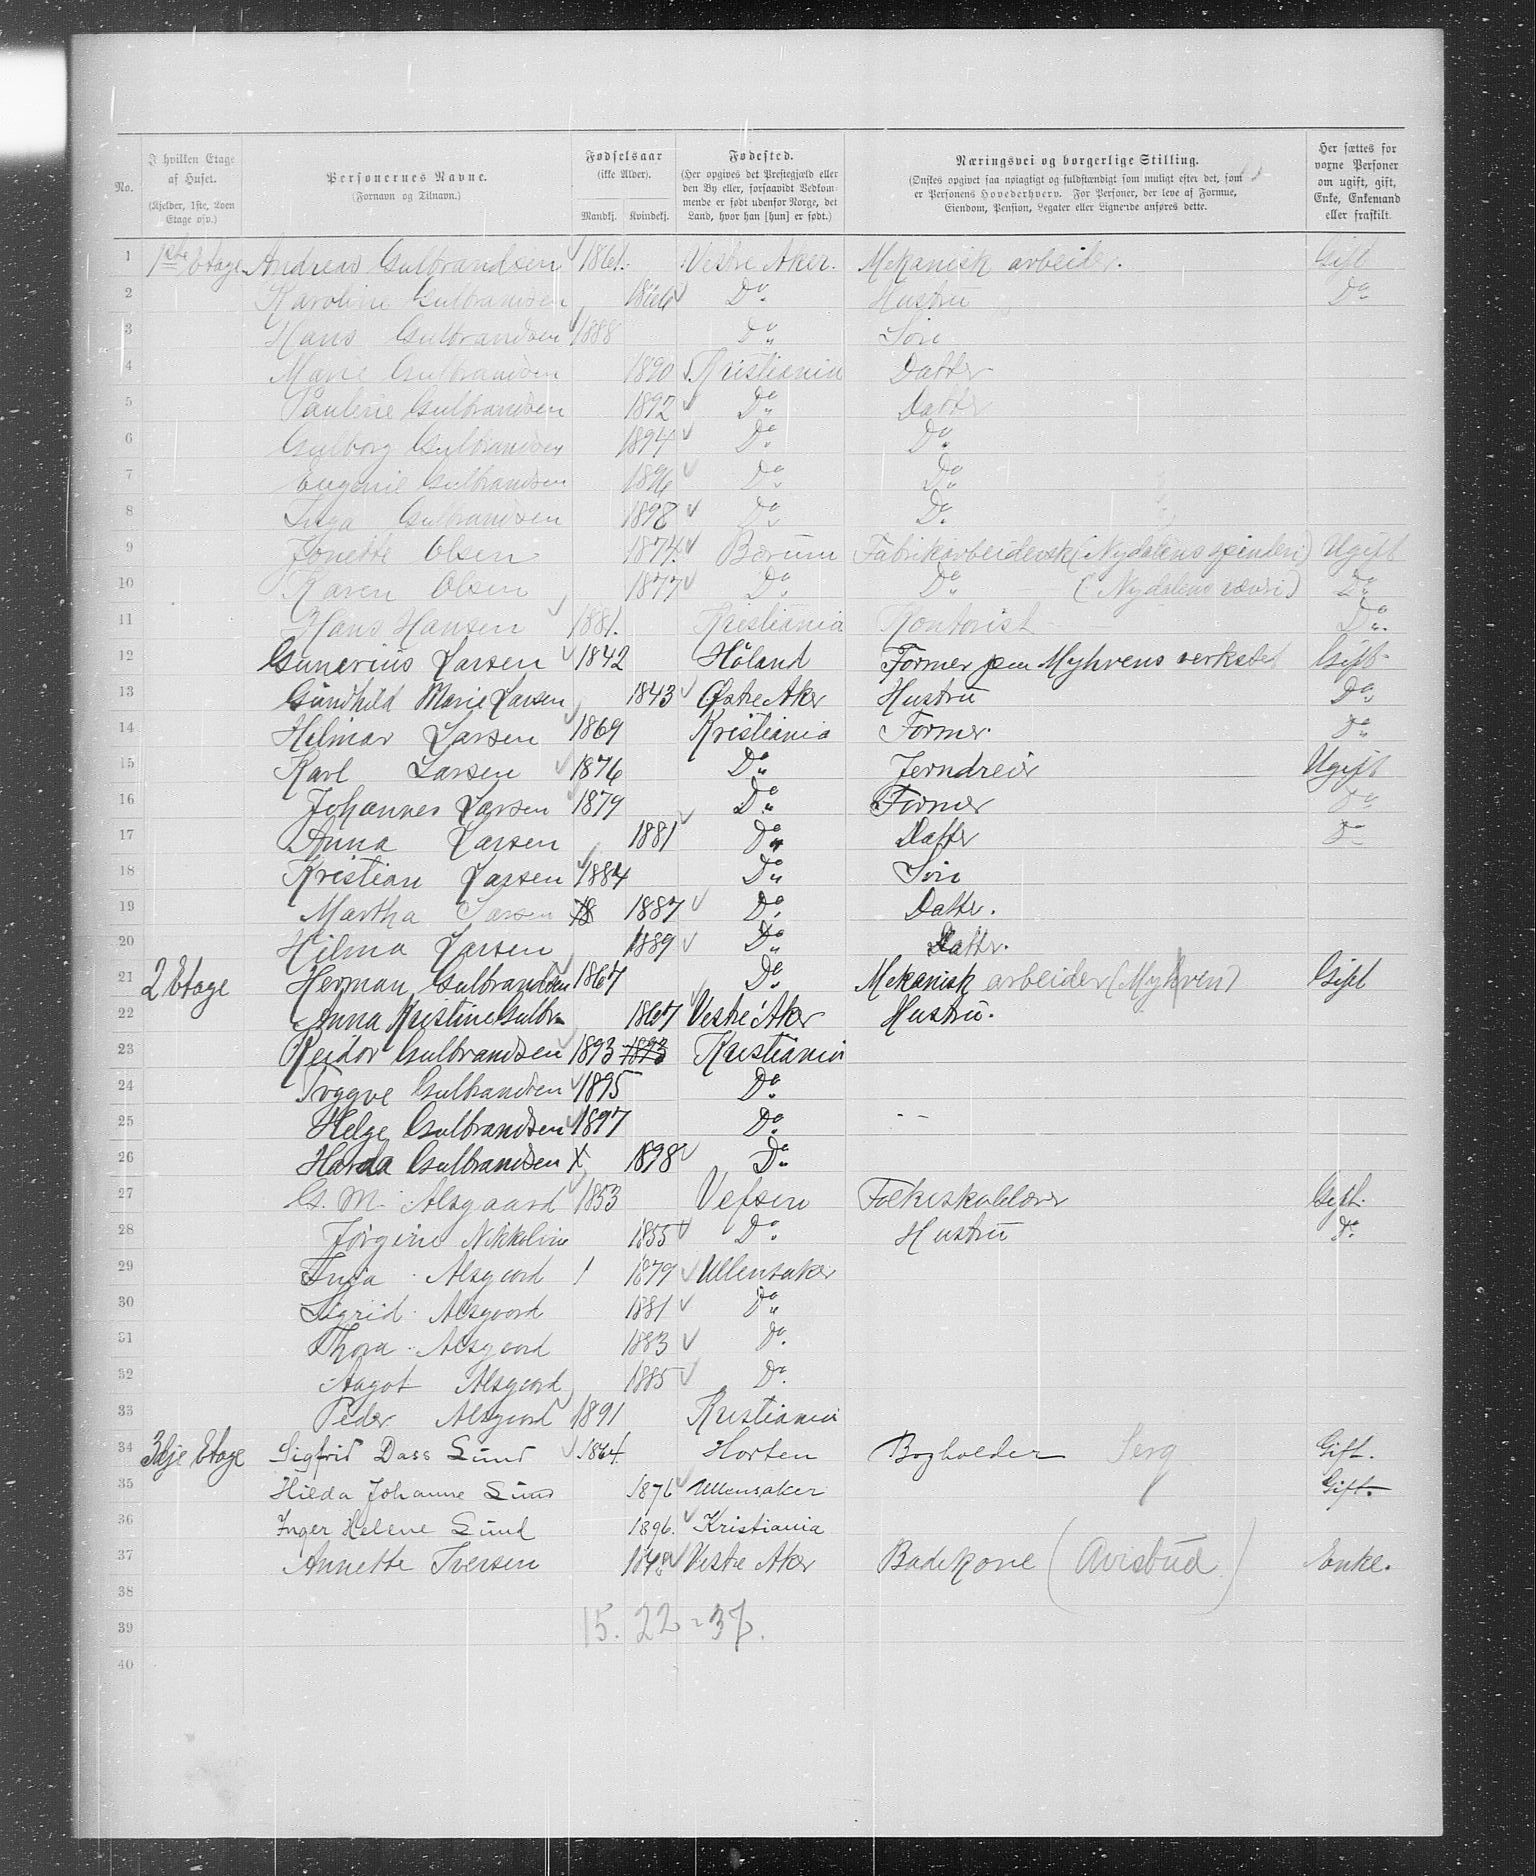 No. I hvilken Etage af Huset. (Kjelder, 1ste, 2den Etage osv.) Personernes Navne. (Fornavn og Tilnavn.) Fødselsaar (ikke Alder). Mandkj. Kvindekj. Fødested. (Her opgives det Prestegjæld eller den By eller, forsaavidt Vedkommende er født udenfor Norge, det Land, hvor han [hun] er født.) Næringsvei og borgerlige Stilling. (Ønskes opgivet saa nøiagtigt og fuldstændigt som muligt efter det, som er Personens Hovederhverv. For Personer, der leve af Formue, Eiendom, Pension, Legater eller Lignende anføres dette. Her sættes for voxne Personer om ugift, gift, Enke, Enkemand eller fraskilt.
1 1ste Etage Andreas Gulbrandsen 1861. Vestre Aker. Mekanisk arbeider. Gift
2 Karoline Gulbrandsen 1866 Do Hustru Do
3 Hans Gulbrandsen 1888 Do Søn
4 Marie Gulbrandsen 1890 Kristiania Datter
5 Pauline Gulbrandsen 1892 Do Datter
6 Gulborg Gulbrandsen 1894 Do Do
7 Eugenie Gulbrandsen 1896 Do Do
8 Inga Gulbrandsen 1898 Do Do
9 Jonette Olsen 1874. Bærum Fabrikarbeiderske (Nydalens spinderi) Ugift
10 Karen Olsen 1877 Do Do (Nydalens væveri) Do
11 Hans Hansen 1881. Kristiania Kontorist Do
12 Gunerius Larsen 1842 Høland Former paa Myhrens verksted Gift
13 Gundhild Marie Larsen 1843 Østre Aker Hustru Do
14 Hilmar Larsen 1869 Kristiania Former. Do
15 Karl Larsen 1876 Do Jerndreier Ugift
16 Johannes Larsen 1879 Do Former Do
17 Anna Larsen 1881 Do Datter Do
18 Kristian Larsen 1884 Do Søn
19 Martha Larsen 18 1887 Do Datter.
20 Hilma Larsen 1889 Do Datter.
21 2 Etage Herman Gulbrandsen 1867 Do Mekanisk arbeider (Myhren) Gift
22 Anna Kristine Gulbr 1867 Vestre Aker Hustru.
23 Reidor Gulbrandsen 1893 1893 Kristiania
24 Tryggve Gulbrandsen 1895 Do
25 Helge Gulbrandsen 1897 Do
26 Harda Gulbrandsen X 1898 Do
27 G. M. Alsgaard 1853 Vefsen Folkeskolelærer Gift.
28 Jørgine Nikkoline 1855 Do Hustru Do
29 Inga Alsgaard 1879 Ullensaker
30 Sigrid Alsgaard 1881 Do
31 Thora Alsgaard 1883 Do
32 Aagot Alsgaard 1885 Do
33 Peder Alsgaard 1891 Kristiania
34 3dje Etage Sigfrid Dass Lund 1864. Horten Bogholder Gift.
35 Hilda Johanne Lund 1876 Ullensaker Gift.
36 Inger Helene Lund 1896. Kristiania
37 Annette Iversen 1848 Vestre Aker Badekone (Avisbud) Enke.
38
39 15. 22 = 37.
40